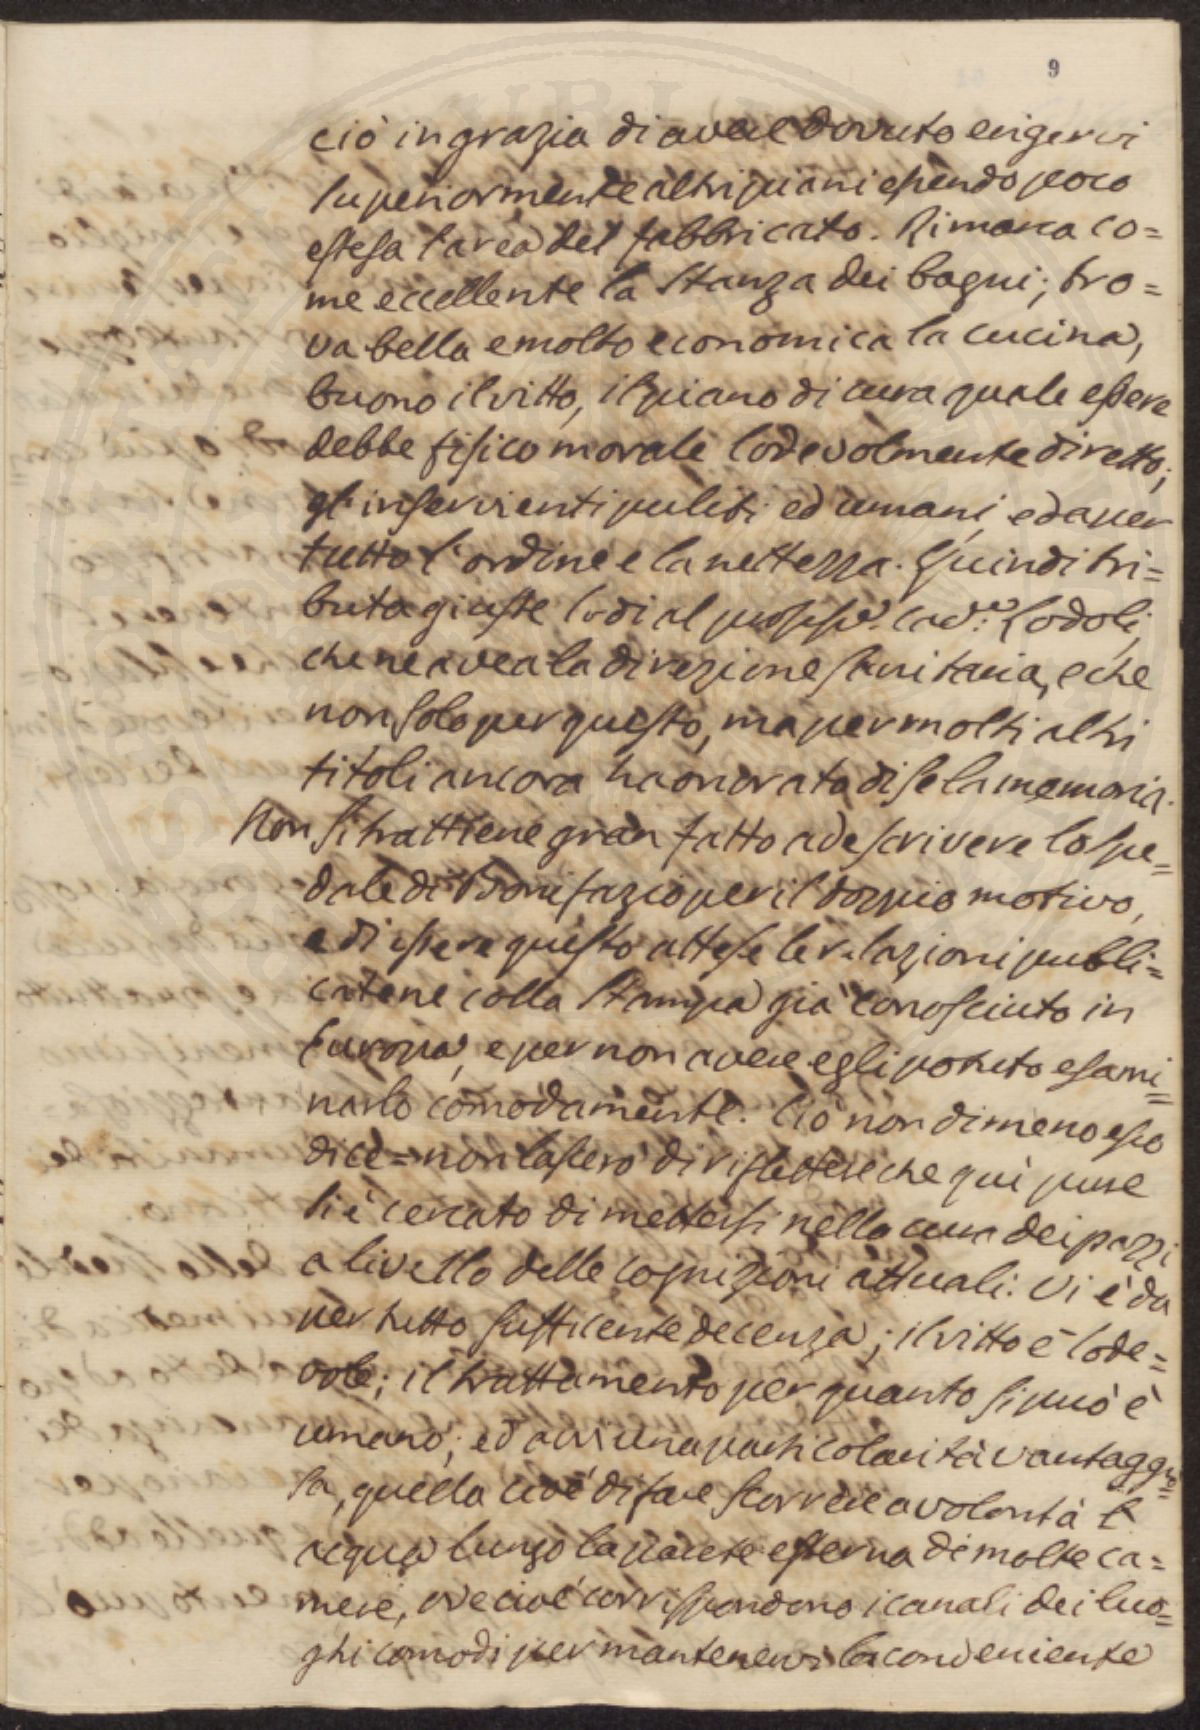 9
ciò in grazia di avere dovuto erigervi
superiormente altri piani essendo poco
estesa l'area del fabbricato. Rimarca co=
me eccellente la stanza dei bagni; tro=
va bella e molto economica la cucina,
buono il vitto, il piano di cura quale essere
debbe fisico morale lodevolmente diretto;
gl'inservienti puliti ed umani, e da per
tutto l'ordine e la nettezza. Quindi tri=
buta giuste lodi al Cav.e Lodoli,
che ne avea la direzione sanitaria, e che
non solo per questo, ma per molti altri
titoli ancora ha onorata di se la memoria.
Non si trattiene gran fatto a descrivere lo spe=
dale di Bonifazio per il doppio motivo,
e di essere questo attese le relazioni pubbli=
catene colla stampa già conosciuto in
Europa, e per non avere egli potuto esami=
narlo comodamente. Ciò non di meno esso
dice = non lascerò di riflettere che quì pure
si è cercato di mettersi nella cura dei pazzi
a livello delle cognizioni attuali. Vi è da
per tutto sufficente decenza; il vitto è lode=
vole; il trattamento per quanto si può è
umano; ed avvi una particolarità vantaggio=
sa, quella cioè di fare scorrere a volontà l'
acqua lungo la parete esterna di molte ca=
mere, ove cioè corrispondono i canali dei luo=
ghi comodi per mantenervi la conveniente